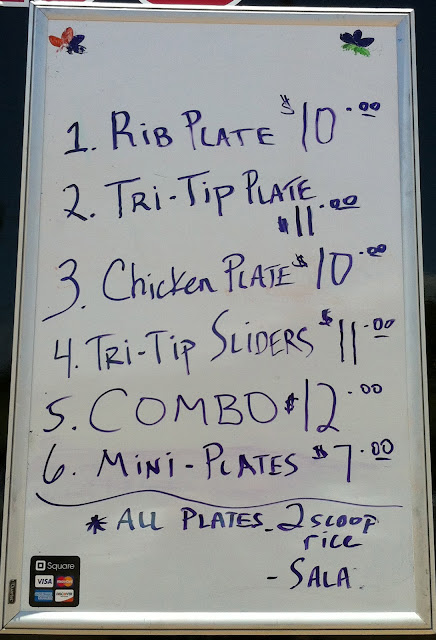 1. RIB PLATE $10.00
2. TRI-TIP PLATE
$11.00
3. Chicken PLATE $10.00
4. TRI-TIP SLIDERS $11.00
5. COMBO $12.00
6. MINI-PLATES $7.00
* ALL PLATES - 2 scoop
rice
- SALA
Square
VISA MasterCard
DISCOVER